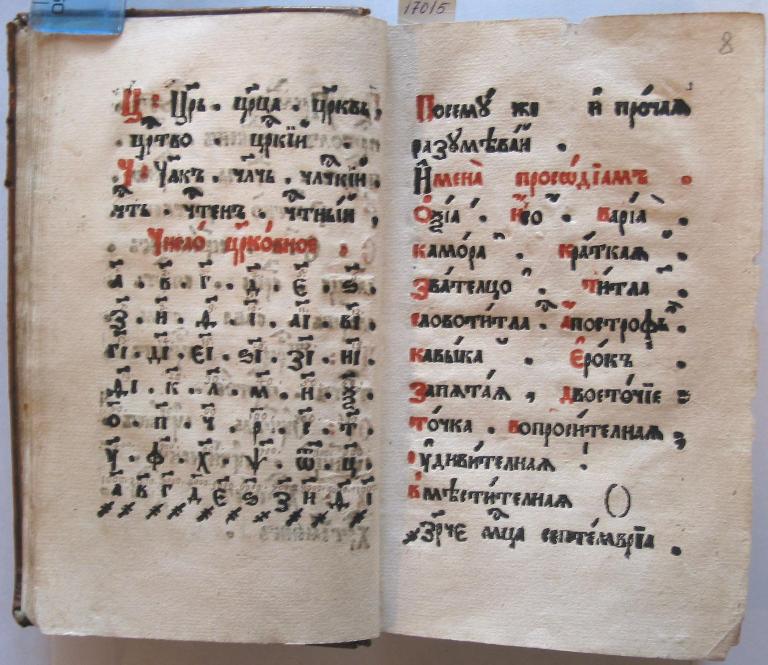 17015
8
Ц: Црь . црца . црквь,
. цртво . цркїй .
Ч: Члкъ . члчь . члчкїй .
чть . чтенъ . чтный .
Число́ црко́вное .
а . в . г . д . є . ѕ .
з . и . ѳ . і . аі . ві .
гі . ді . єі . ѕі . зі . иі .
ѳі . к . л . м . н . ѯ .
о . п . ч . р . с . т .
у . ф . х . ѱ . ѿ . ц .
а в г д є ѕ з и ѳ і
Посемꙋ́ же и про́чая
разꙋмѣвай .
Имена̀ просѡді́амъ .
Оѯі́а . И́со . Варі́а .
камо́ра . Кра́ткая .
Звате́лцо . Ти́тла .
словоти́тла . Апострофъ .
кавы́ка . Еро́къ .
Запята́я , двосто́чїе :
то́чка . вопроси́телная ;
ꙋдиви́телная !
вмѣсти́телная ()
Зрче мца септе́мврїа .